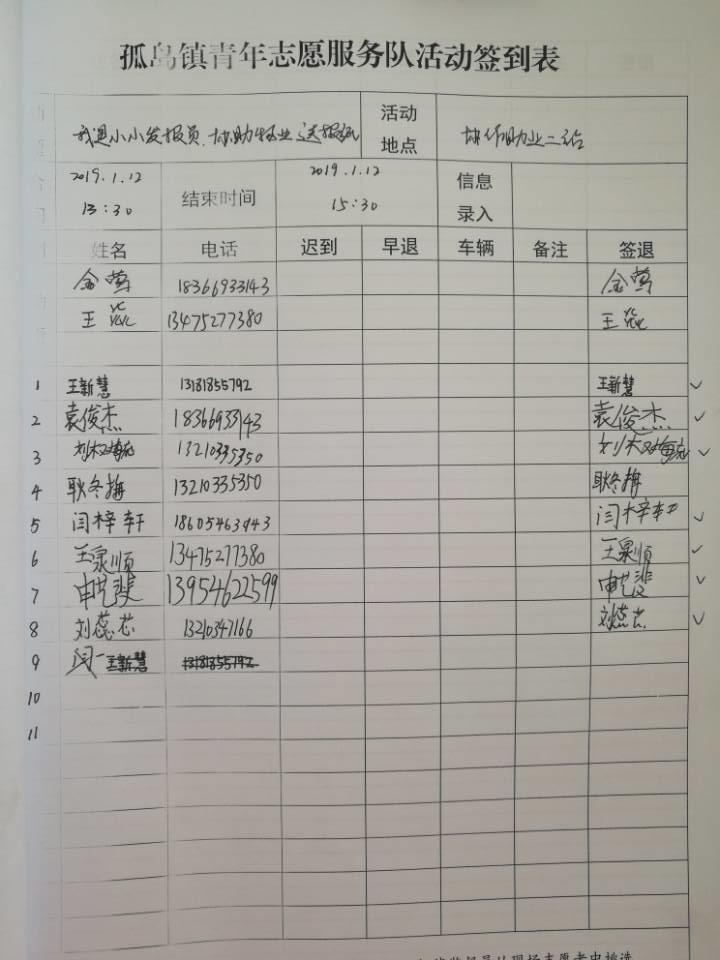 孤岛镇青年志愿服务队活动签到表
我是小小发报员、协助物业送报纸 活动地点 协作物业二站
2019.1.12 13:30 结束时间 2019.1.12 15:30 信息录入
姓名 电话 迟到 早退 车辆 备注 签退
金莺 18366933143 金莺
王焱 13475277380 王焱
1 王新慧 13181855792 王新慧 ✓
2 袁俊杰 18366933143 袁俊杰 ✓
3 13210335350 ✓
4 耿冬梅 13210335350 耿冬梅
5 闫梓轩 18605463943 闫梓轩 ✓
6 王泉顺 13475277380 王泉顺 ✓
7 申艺斐 13954622599 申艺斐 ✓
8 刘蕊芯 13210347166 刘蕊芯 ✓
9 闫一 王新慧 13181855792
10
11